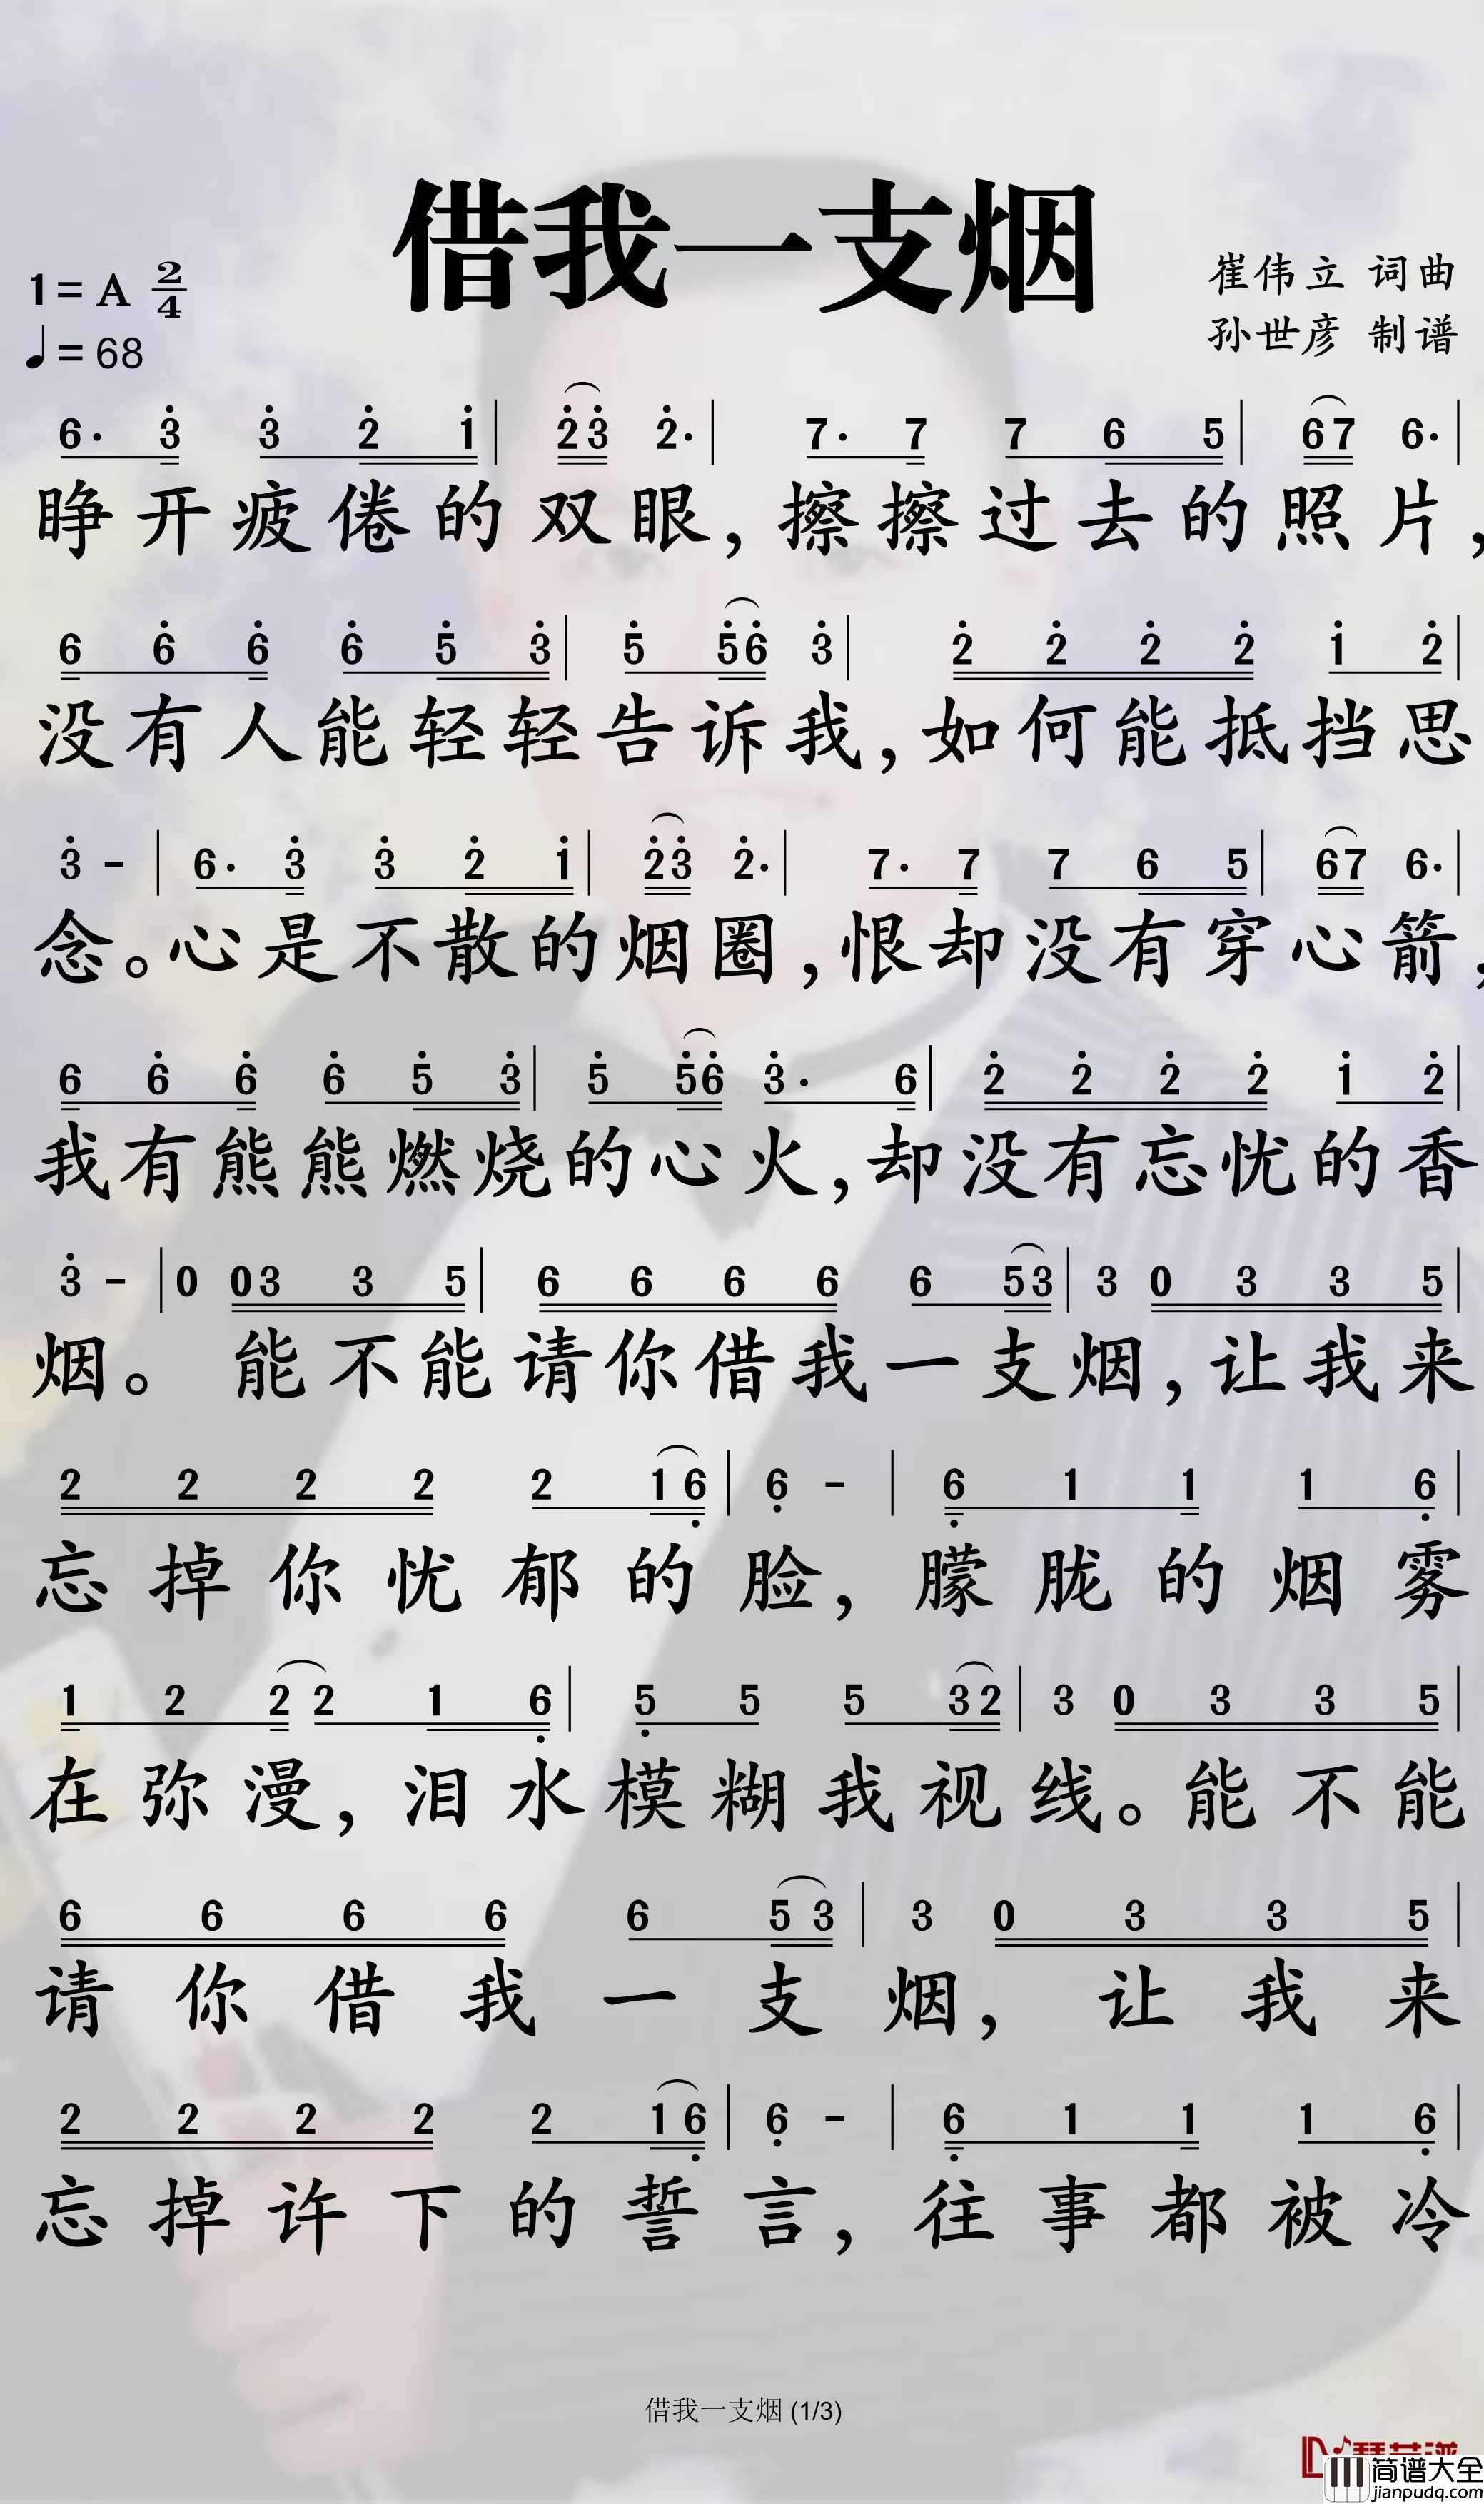 借我一支烟
1=A 2/4
崔伟立 词曲
♩=68
孙世彦 制谱
6· 3 3 2 1 | 23 2· | 7· 7 7 6 5 | 67 6· |
睁开疲倦的双眼，擦擦过去的照片，
6 6 6 6 5 3 | 5 56 3 | 2 2 2 2 1 2 |
没有人能轻轻告诉我，如何能抵挡思
3 - | 6· 3 3 2 1 | 23 2· | 7· 7 7 6 5 | 67 6· |
念。心是不散的烟圈，恨却没有穿心箭，
6 6 6 6 5 3 | 5 56 3· 6 | 2 2 2 2 1 2 |
我有熊熊燃烧的心火，却没有忘忧的香
3 - | 0 03 3 5 | 6 6 6 6 6 53 | 3 0 3 3 5 |
烟。能不能请你借我一支烟，让我来
2 2 2 2 2 16 | 6 - | 6 1 1 1 6 |
忘掉你忧郁的脸，朦胧的烟雾
1 2 2 2 1 6 | 5 5 5 32 | 3 0 3 3 5 |
在弥漫，泪水模糊我视线。能不能
6 6 6 6 6 53 | 3 0 3 3 5 |
请你借我一支烟，让我来
2 2 2 2 2 16 | 6 - | 6 1 1 1 6 |
忘掉许下的誓言，往事都被冷
借我一支烟 (1/3)
简谱大全
jianpudq.com